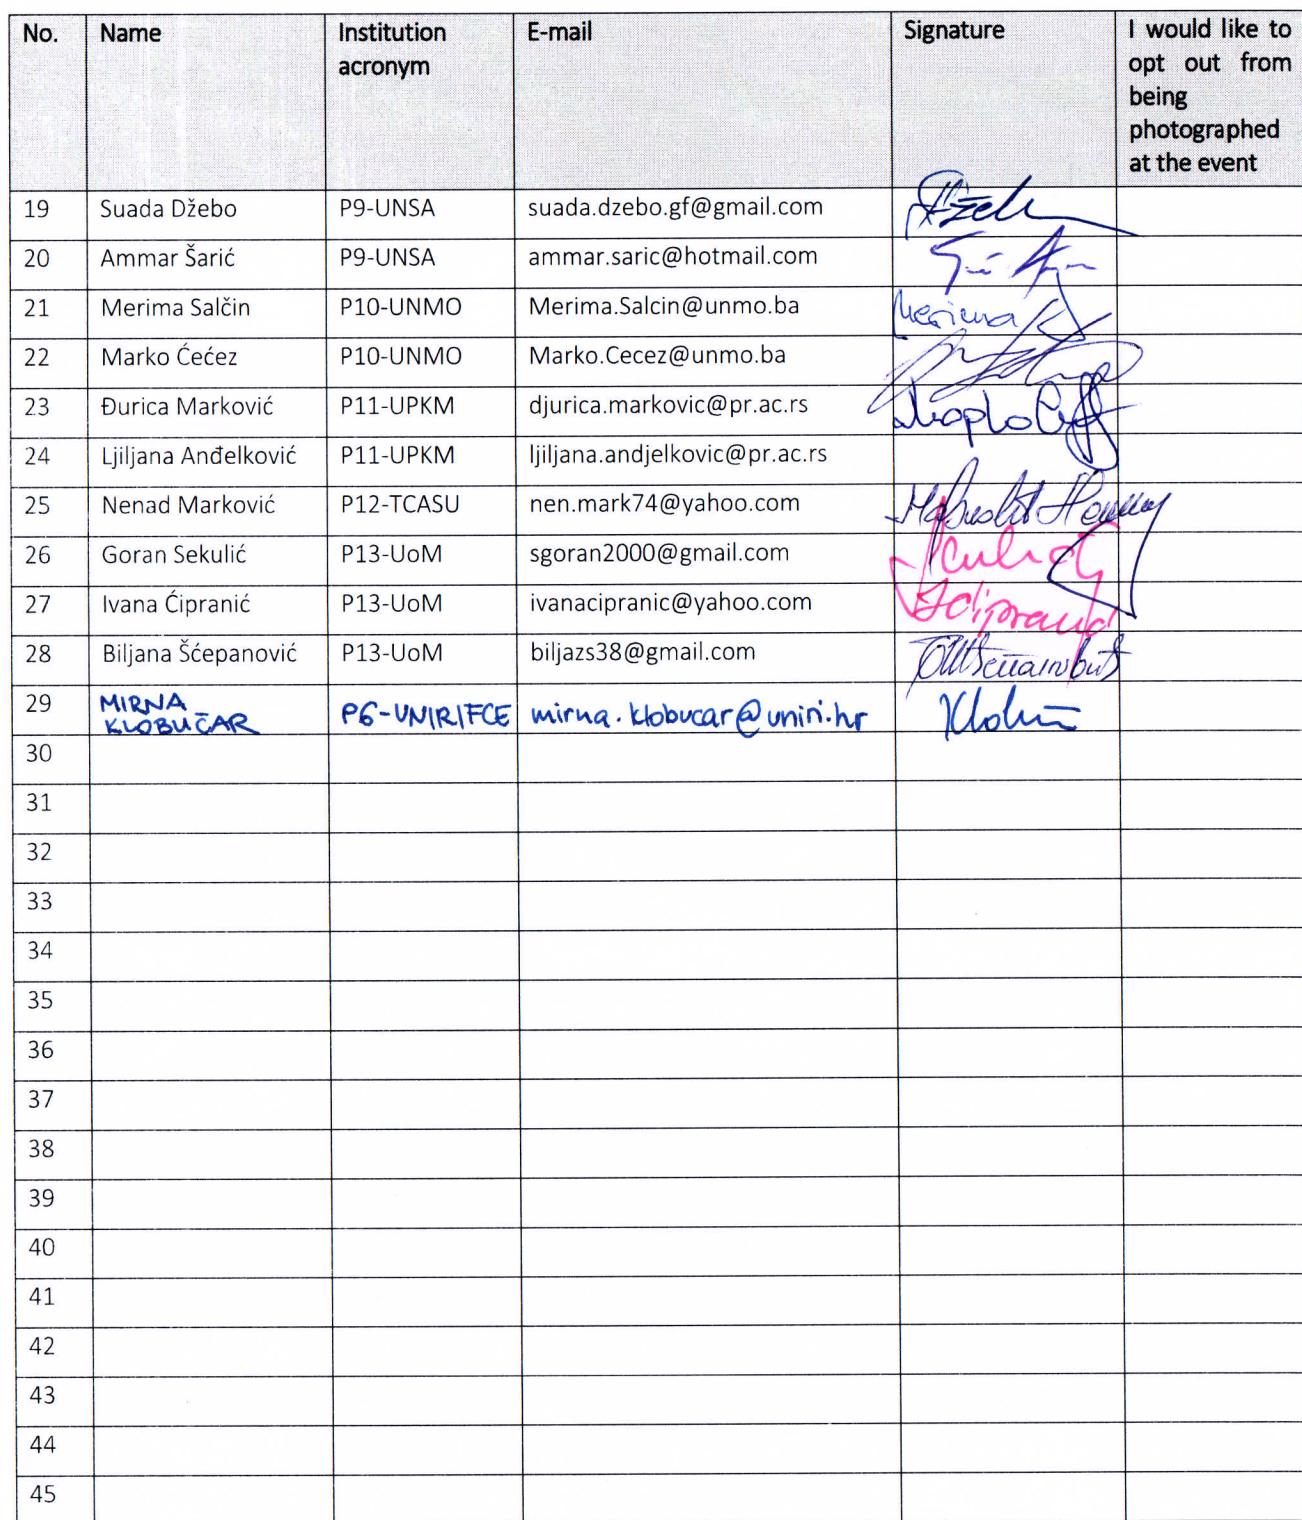 No. Name Institution acronym E-mail Signature I would like to opt out from being photographed at the event
19 Suada Džebo P9-UNSA suada.dzebo.gf@gmail.com
20 Ammar Šarić P9-UNSA ammar.saric@hotmail.com
21 Merima Salčin P10-UNMO Merima.Salcin@unmo.ba Merima
22 Marko Ćećez P10-UNMO Marko.Cecez@unmo.ba
23 Đurica Marković P11-UPKM djurica.markovic@pr.ac.rs
24 Ljiljana Anđelković P11-UPKM ljiljana.andjelkovic@pr.ac.rs
25 Nenad Marković P12-TCASU nen.mark74@yahoo.com
26 Goran Sekulić P13-UoM sgoran2000@gmail.com
27 Ivana Ćipranić P13-UoM ivanacipranic@yahoo.com
28 Biljana Šćepanović P13-UoM biljazs38@gmail.com
29 MIRNA KLOBUČAR P6-UNIRIFCE mirna.klobucar@uniri.hr
30
31
32
33
34
35
36
37
38
39
40
41
42
43
44
45